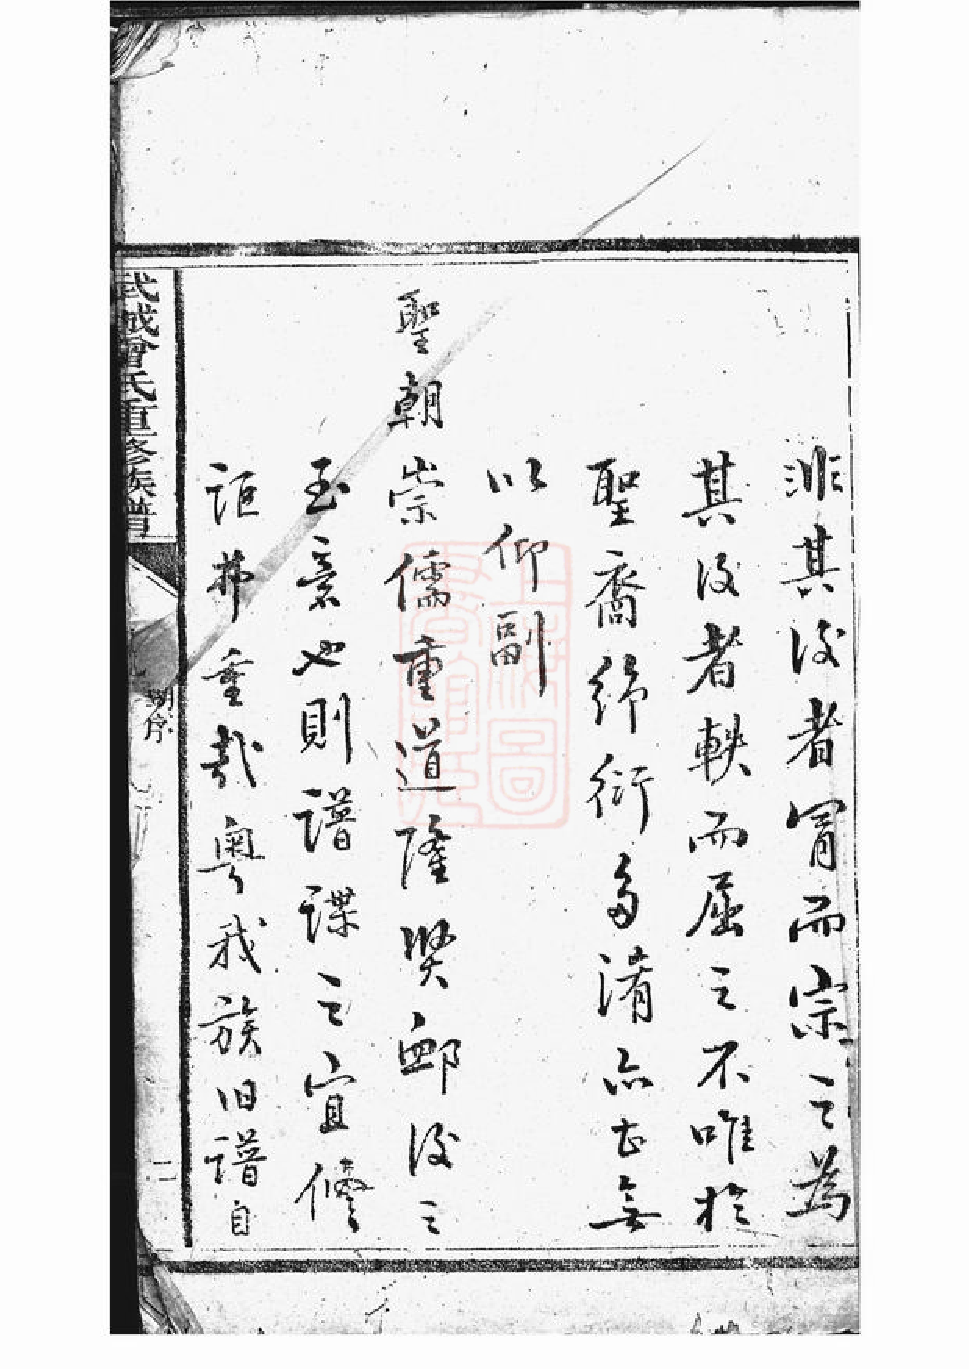 非其後者冒而宗之為
其後者軼而屈之不唯於
聖裔綿衍多淆亦甚無
以仰副
聖朝崇儒重道隆奨卹後之
至意也則譜諜之宜修
詎弗重哉粵我族旧譜自
武城曾氏重修族譜
序
二